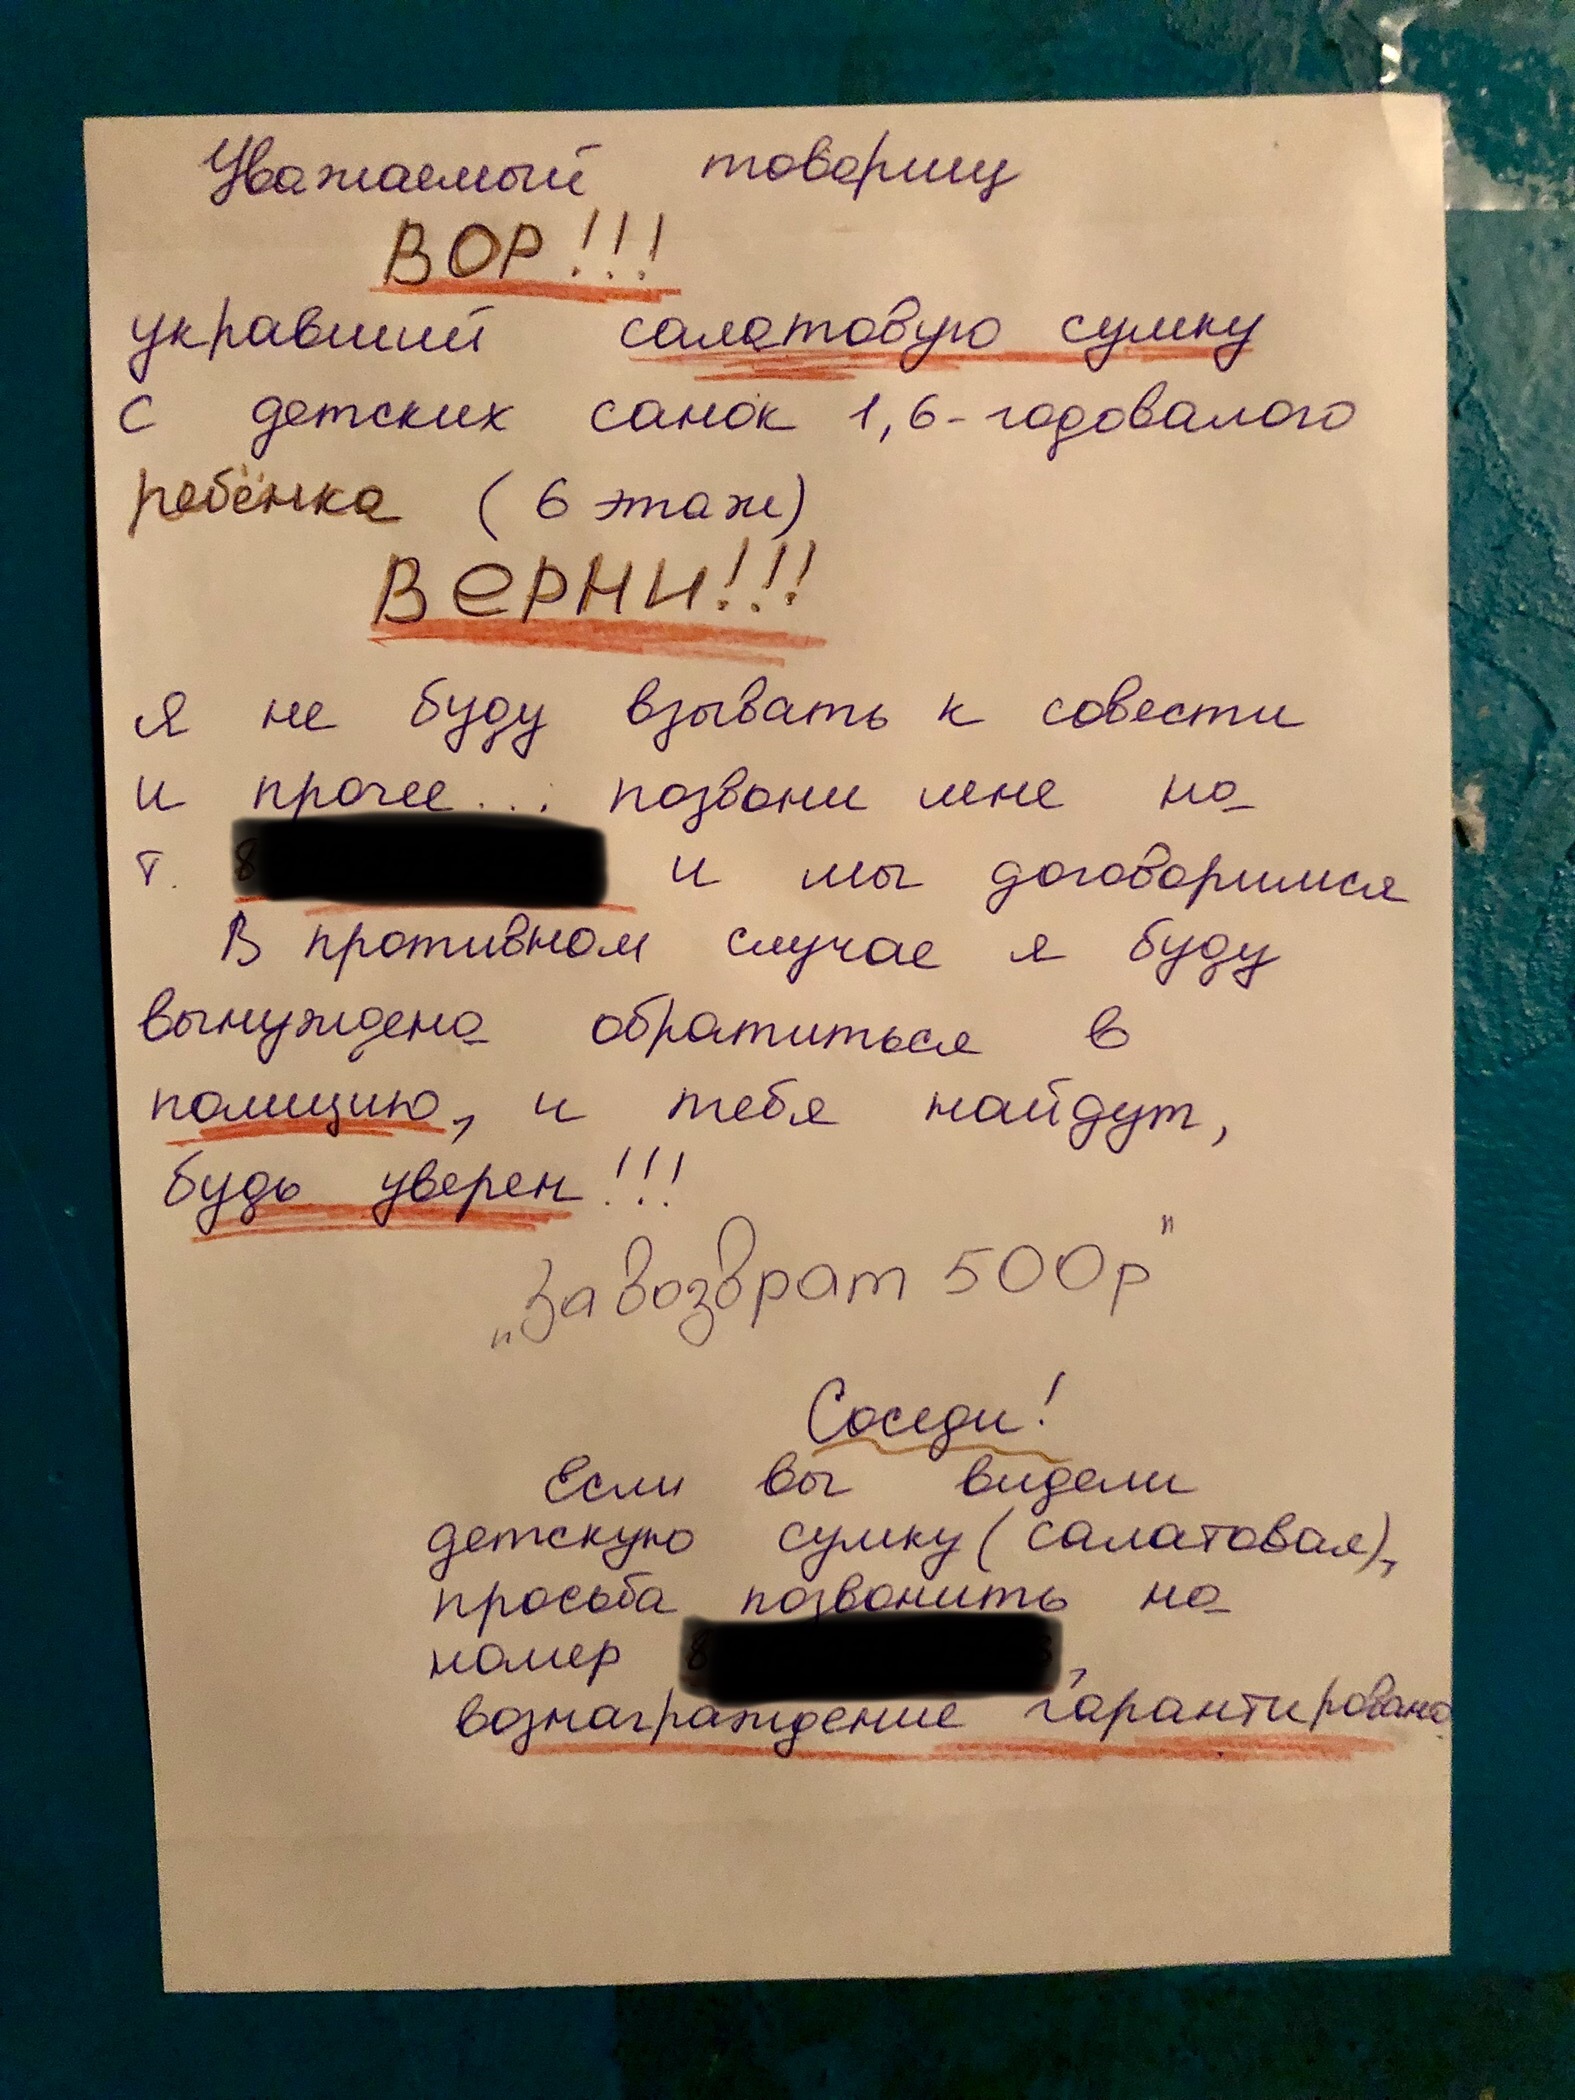 Уважаемый товарищ
ВОР!!!
укравший салатовую сумку
с детских санок 1,6-годовалого
ребёнка (6 этаж)
ВЕРНИ!!!
Я не буду взывать к совести
и прочее... позвони мне на
т. 8 и мы договоримся
В противном случае я буду
вынуждена обратиться в
полицию, и тебя найдут,
будь уверен!!!
„За возврат 500р"
Соседи!
Если вы видели
детскую сумку (салатовая),
просьба позвонить на
номер 8 ,
вознаграждение гарантировано